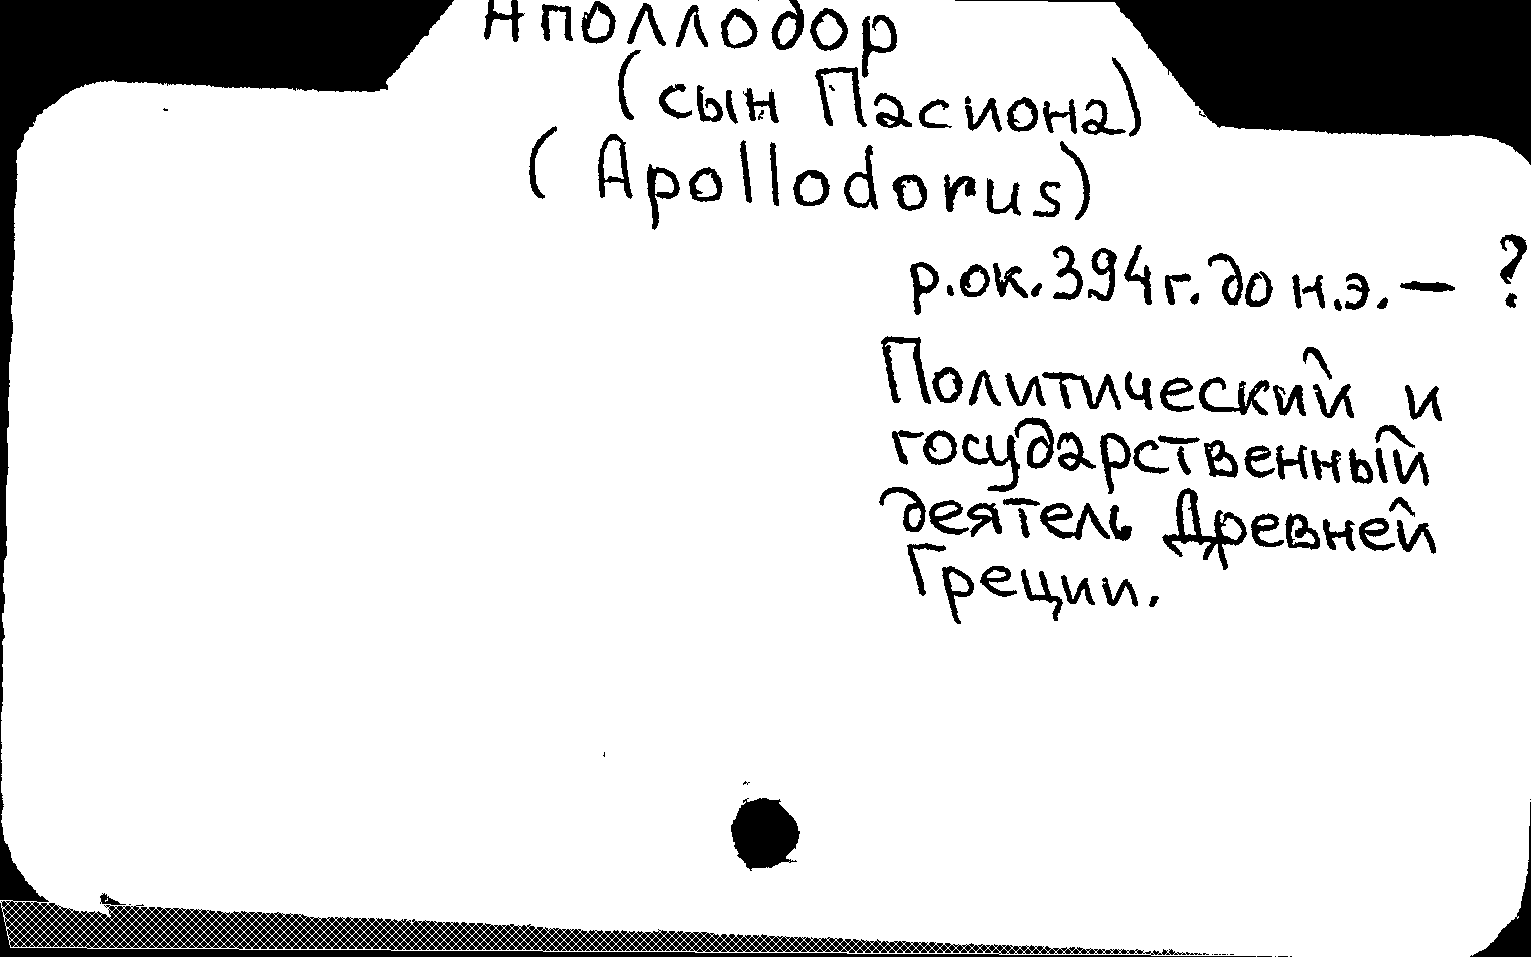 Аполлодор
(сын Пасиона)
(Apollodorus)
р.ок.394г.до н.э.— ?
Политический и
государственный
деятель Древней
Греции.